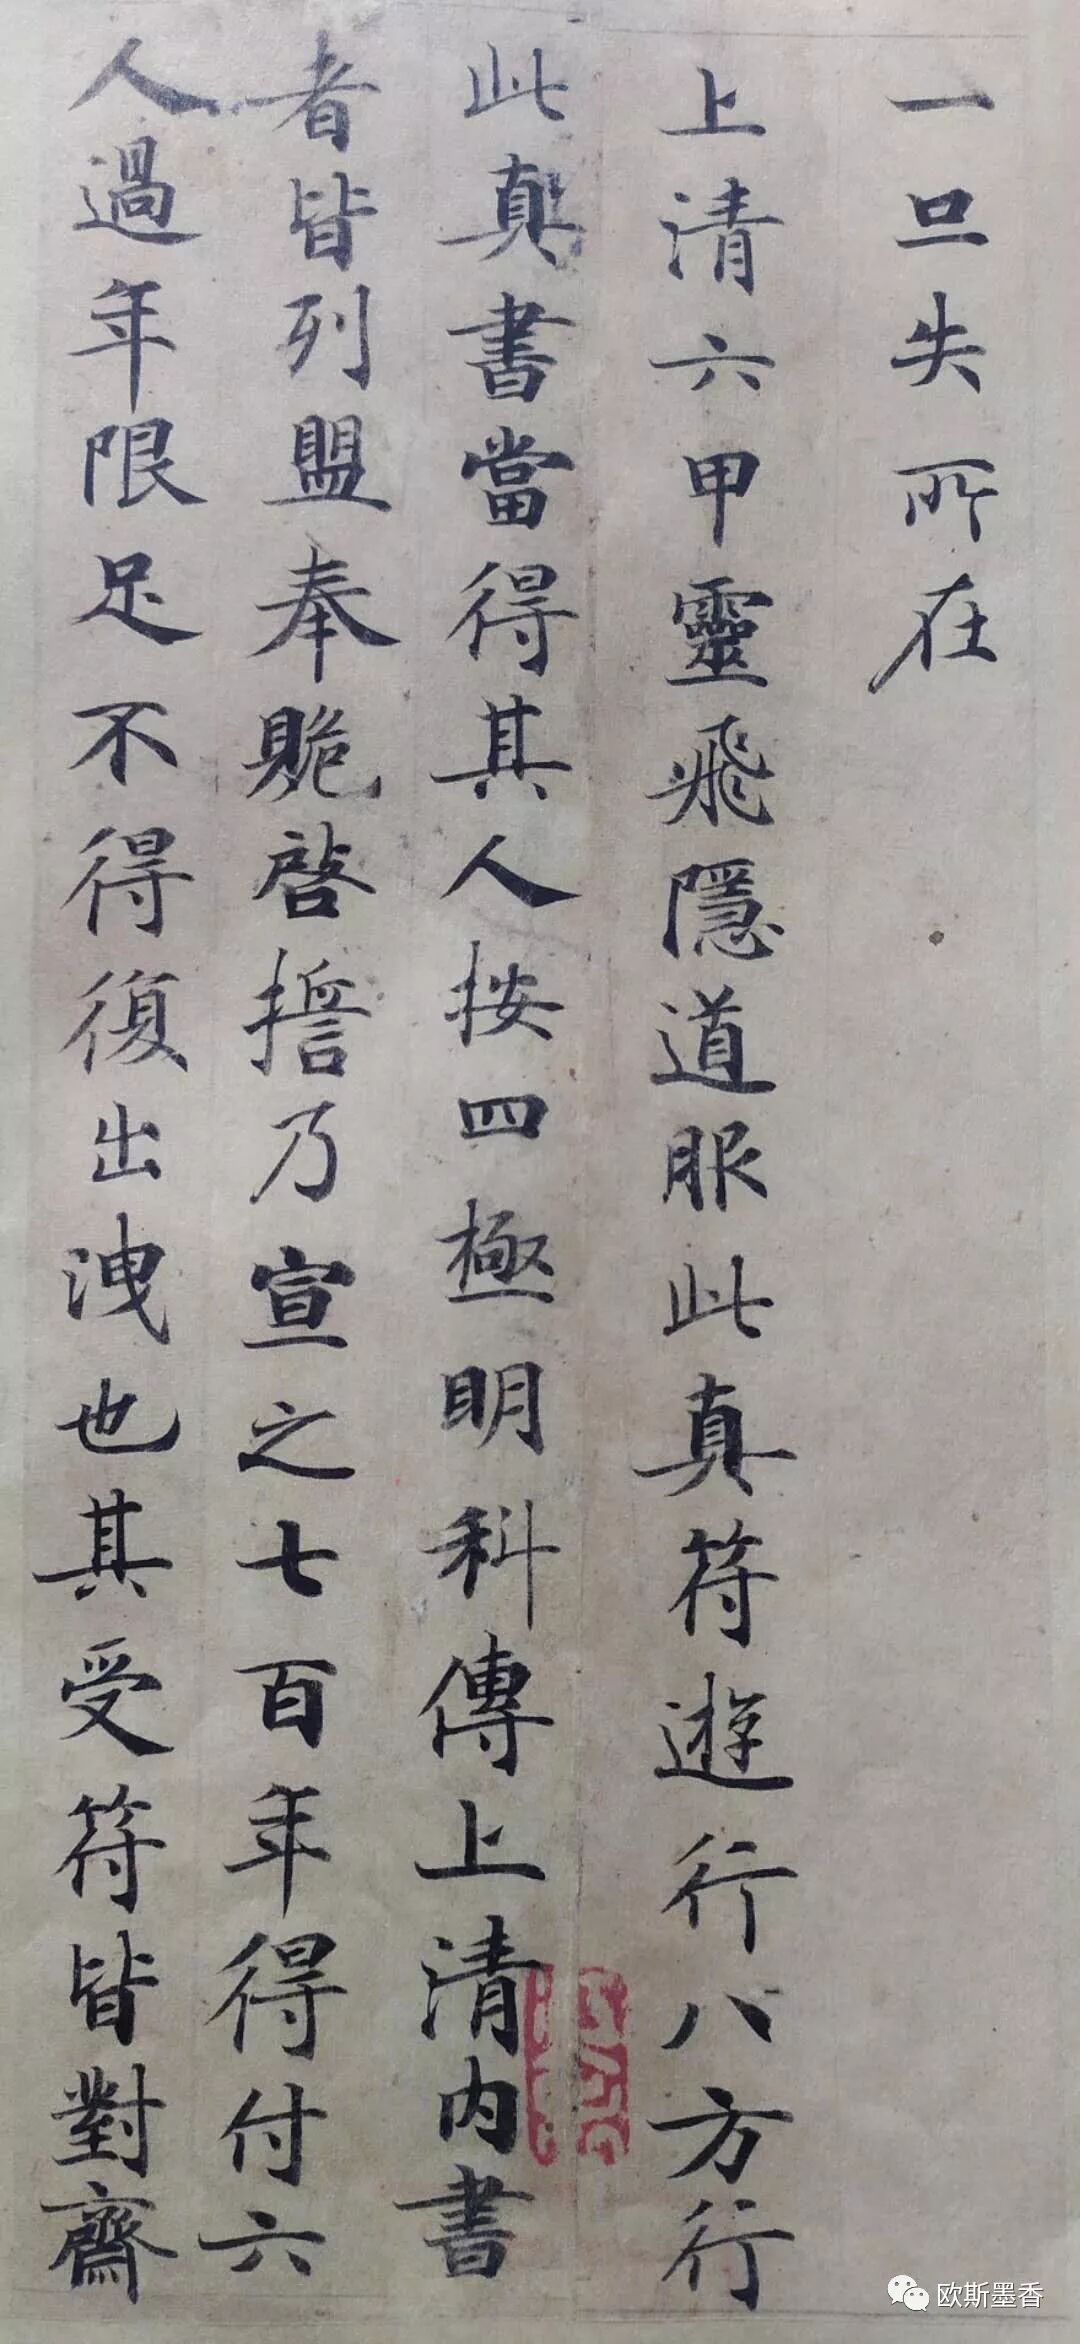 一旦失所在
上清六甲靈飛隱道服此真符遊行八方行
此真書當得其人按四極明科傳上清內書
者皆列盟奉貺啓誓乃宣之七百年得付六
人過年限足不得復出洩也其受符皆對齋
欧斯墨香